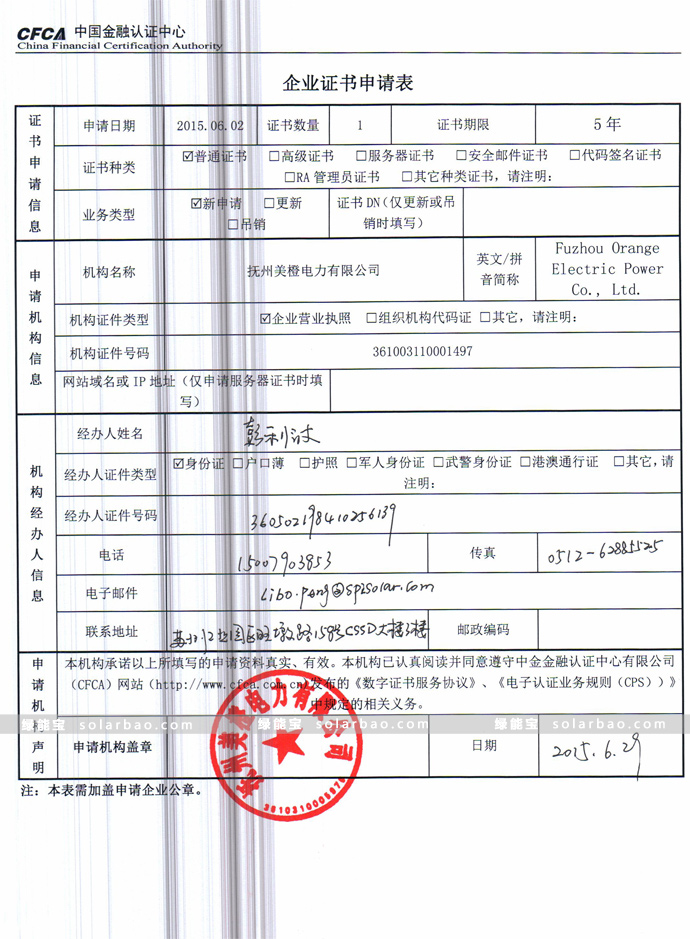 CFCA 中国金融认证中心
China Financial Certification Authority
企业证书申请表
证书申请信息
申请日期 2015.06.02 证书数量 1 证书期限 5年
证书种类 ☑普通证书 □高级证书 □服务器证书 □安全邮件证书 □代码签名证书
□RA管理员证书 □其它种类证书，请注明：
业务类型 ☑新申请 □更新
□吊销
证书DN（仅更新或吊
销时填写）
申请机构信息
机构名称 抚州美橙电力有限公司
英文/拼
音简称
Fuzhou Orange
Electric Power
Co., Ltd.
机构证件类型 ☑企业营业执照 □组织机构代码证 □其它，请注明：
机构证件号码 361003110001497
网站域名或IP地址（仅申请服务器证书时填
写）
机构经办人信息
经办人姓名 彭利
经办人证件类型 ☑身份证 □户口薄 □护照 □军人身份证 □武警身份证 □港澳通行证 □其它，请
注明：
经办人证件号码 360502198410256139
电话 15007903853 传真 0512-62885525
电子邮件 libo.peng@spisolar.com
联系地址 158号CSSD大楼3楼 邮政编码
申请机构声明
本机构承诺以上所填写的申请资料真实、有效。本机构已认真阅读并同意遵守中金金融认证中心有限公司
（CFCA）网站（http://www.cfca.com.cn）发布的《数字证书服务协议》、《电子认证业务规则（CPS））》
中规定的相关义务。
绿能宝 solarbao.com 绿能宝 solarbao.com 绿能宝 solarbao.com
申请机构盖章 日期 2015.6.29
抚州美橙电力有限公司
3610310005976
注：本表需加盖申请企业公章。